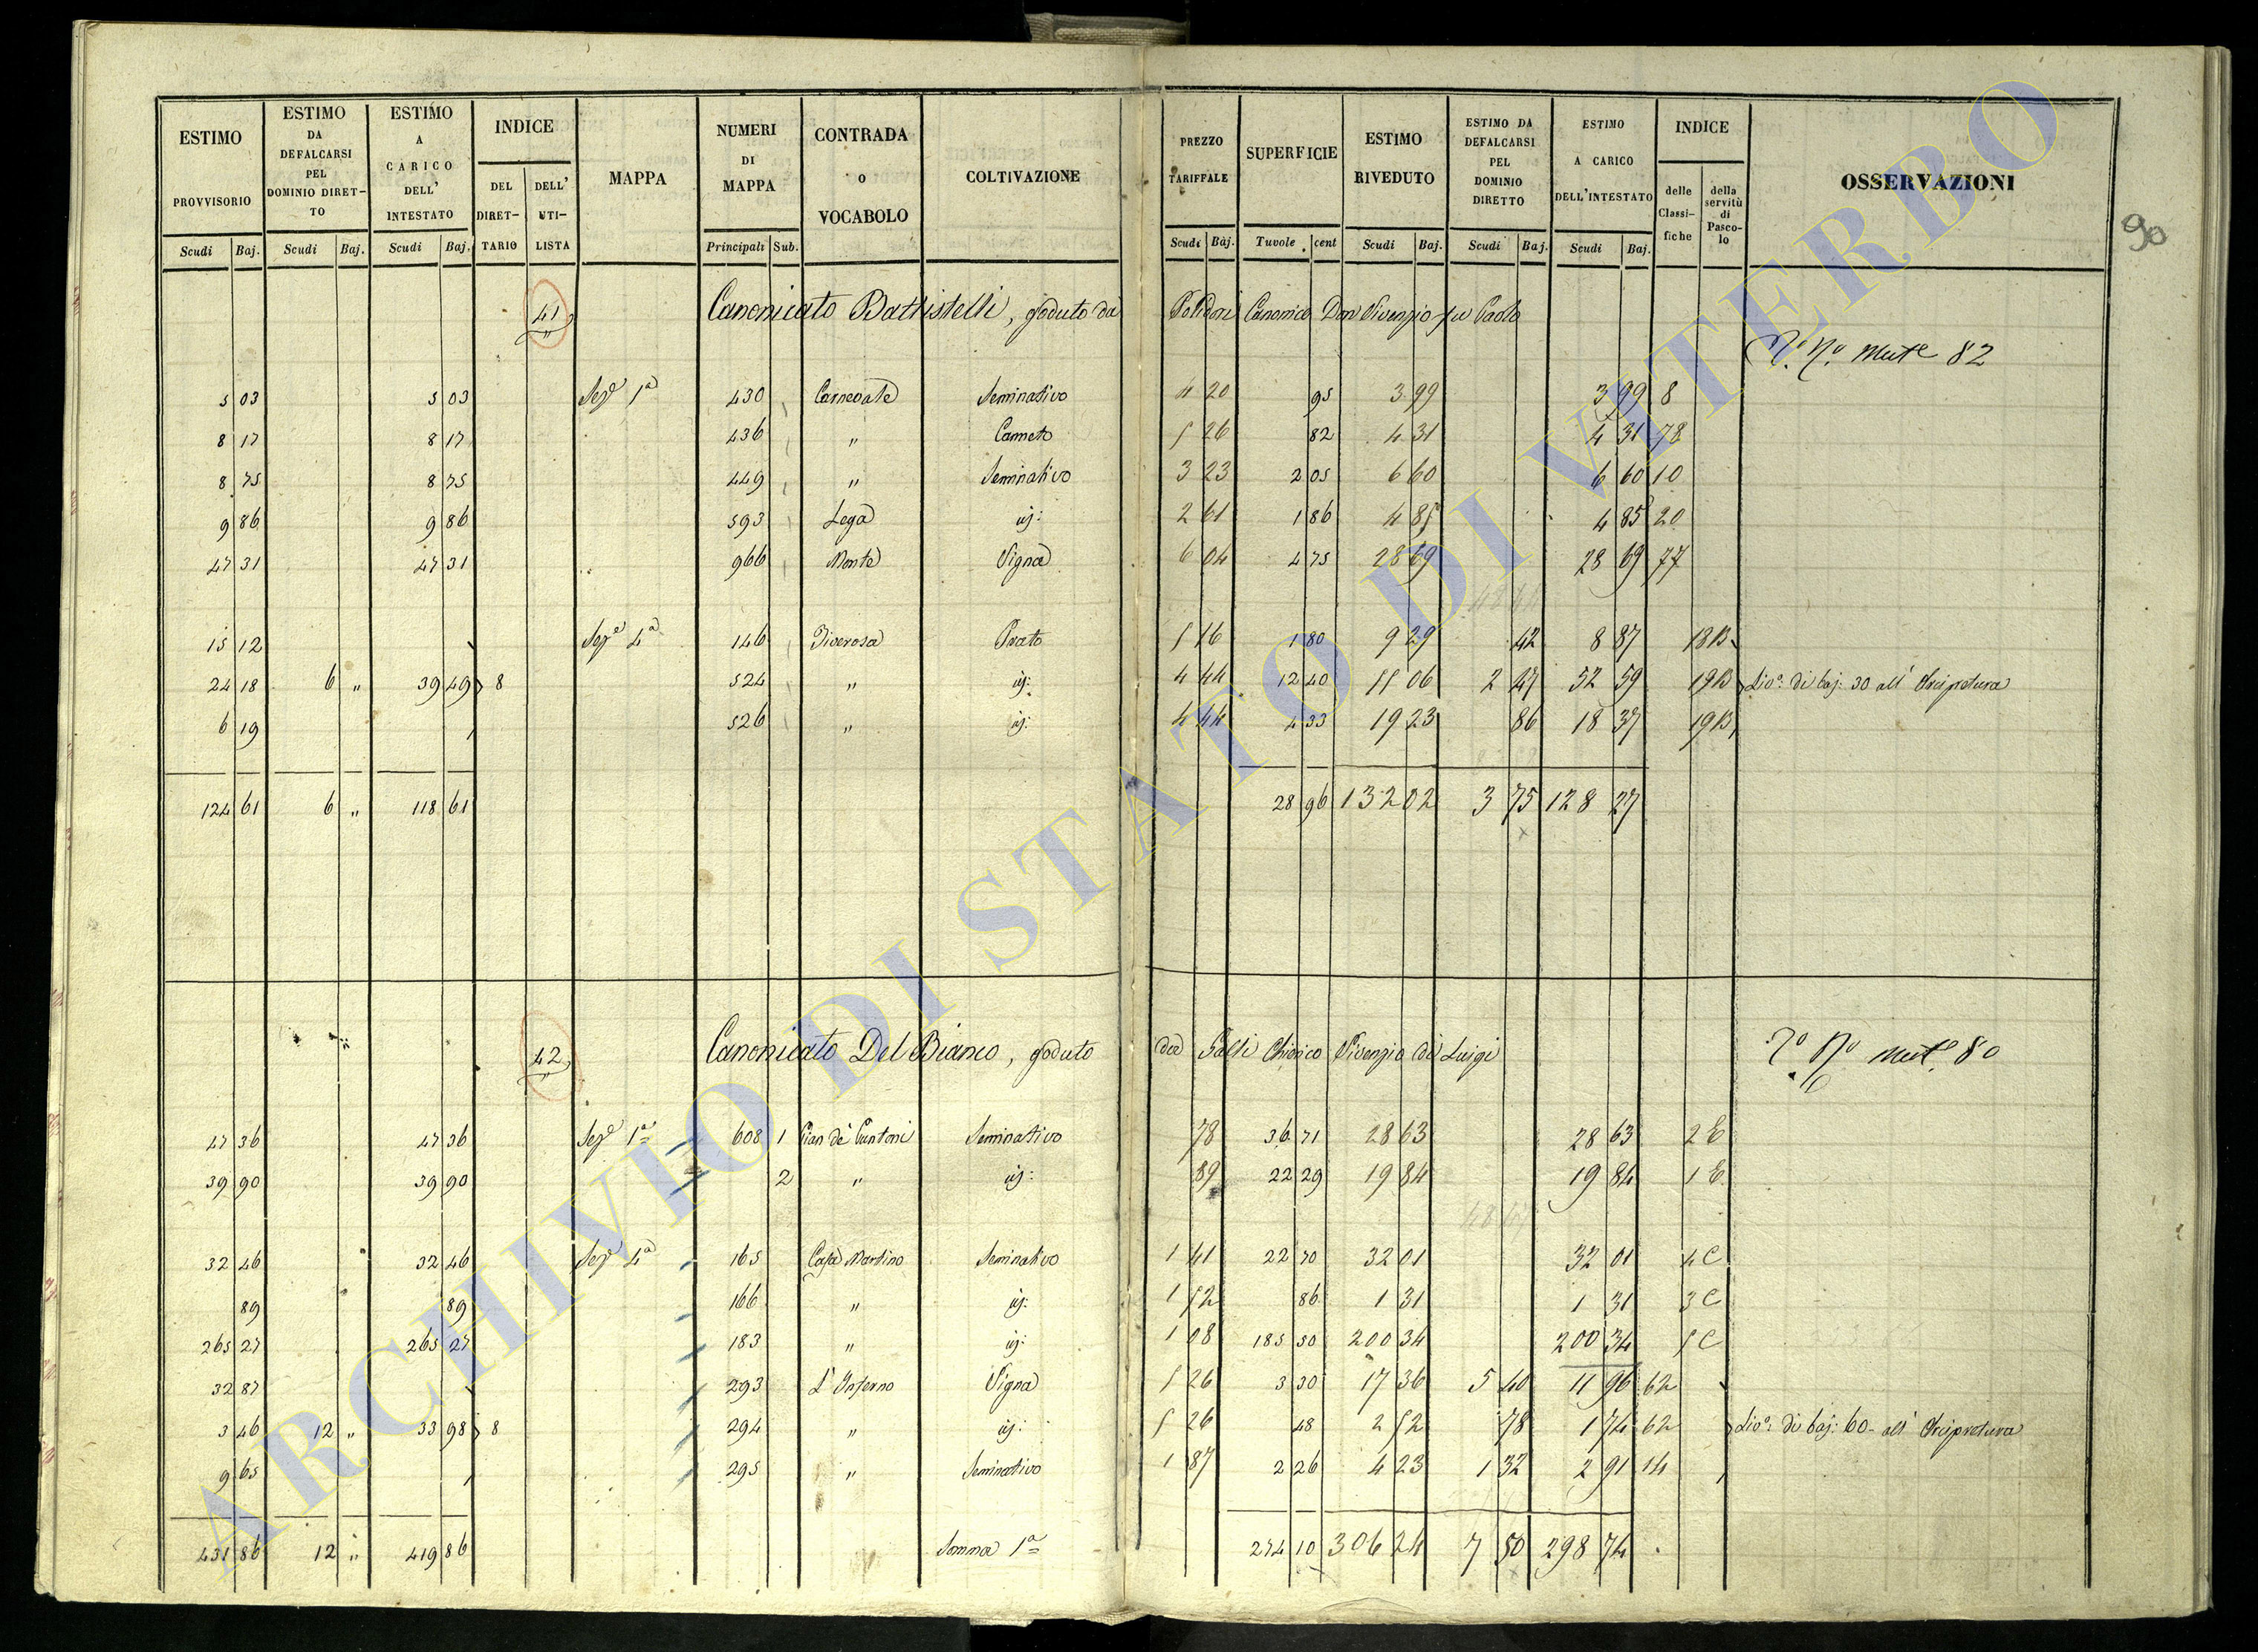 ESTIMO PROVVISORIO Scudi Baj.
ESTIMO DA DEFALCARSI PEL DOMINIO DIRET- TO Scudi Baj.
ESTIMO A CARICO DELL' INTESTATO Scudi Baj.
INDICE DEL DIRET- TARIO DELL' UTI- LISTA
MAPPA
NUMERI DI MAPPA Principali Sub.
CONTRADA O VOCABOLO
COLTIVAZIONE
PREZZO TARIFFALE Scudi Baj.
SUPERFICIE Tavole cent
ESTIMO RIVEDUTO Scudi Baj.
ESTIMO DA DEFALCARSI PEL DOMINIO DIRETTO Scudi Baj.
ESTIMO A CARICO DELL'INTESTATO Scudi Baj.
INDICE delle Classi- fiche della servitù di Pasco- lo
OSSERVAZIONI
90
41 Canonicato Battistelli, goduto da Polidori Canonico Don Vivenzio fu Paolo
Mut.e 82
5 03 5 03 Sez.e 1a 430 Seminativo 4 20 95 3 99 3 99 8
8 17 8 17 436 " Canneto 5 26 82 4 31 4 31 78
8 75 8 75 449 " Seminativo 3 23 2 05 6 60 6 60 10
9 86 9 86 593 Lega id: 2 61 1 86 4 85 4 85 20
47 31 47 31 966 Monte Vigna 6 04 4 75 28 69 28 69 77
15 12 Sez.e 4a 146 Piverosa Prato 5 16 1 80 9 29 42 8 87 18 B
24 18 6 " 39 49 8 524 " id: 4 44 12 40 55 06 2 47 52 59 19 B Liv.o: di baj: 30 all' Arcipretura
6 19 526 " id: 4 44 4 33 19 23 86 18 37 19 B
124 61 6 " 118 61 28 96 132 02 3 75 128 27
42 Canonicato Del Bianco, goduto da Salti Chierico Vivenzio di Luigi
Mut.e 80
47 36 47 36 Sez.e 1a 608 1 Pian de' Seminativo 78 36 71 28 63 28 63 2 E
39 90 39 90 2 " id: 89 22 29 19 84 19 84 1 E
32 46 32 46 Sez.e 4a 165 Casa Martino Seminativo 1 41 22 70 32 01 32 01 4 C
89 89 166 " id: 1 52 86 1 31 1 31 3 C
265 27 265 27 183 " id: 1 08 185 50 200 34 200 34 5 C
32 87 293 L'Inferno Vigna 5 26 3 30 17 36 5 40 11 96 62
3 46 12 " 33 98 8 294 " id: 5 26 48 2 52 78 1 74 62 Liv.o: di baj: 60 all' Arcipretura
9 65 295 " Seminativo 1 87 2 26 4 23 1 32 2 91 14
431 86 12 " 419 86 Somma 1a 274 10 306 24 7 50 298 74
ARCHIVIO DI STATO DI VITERBO